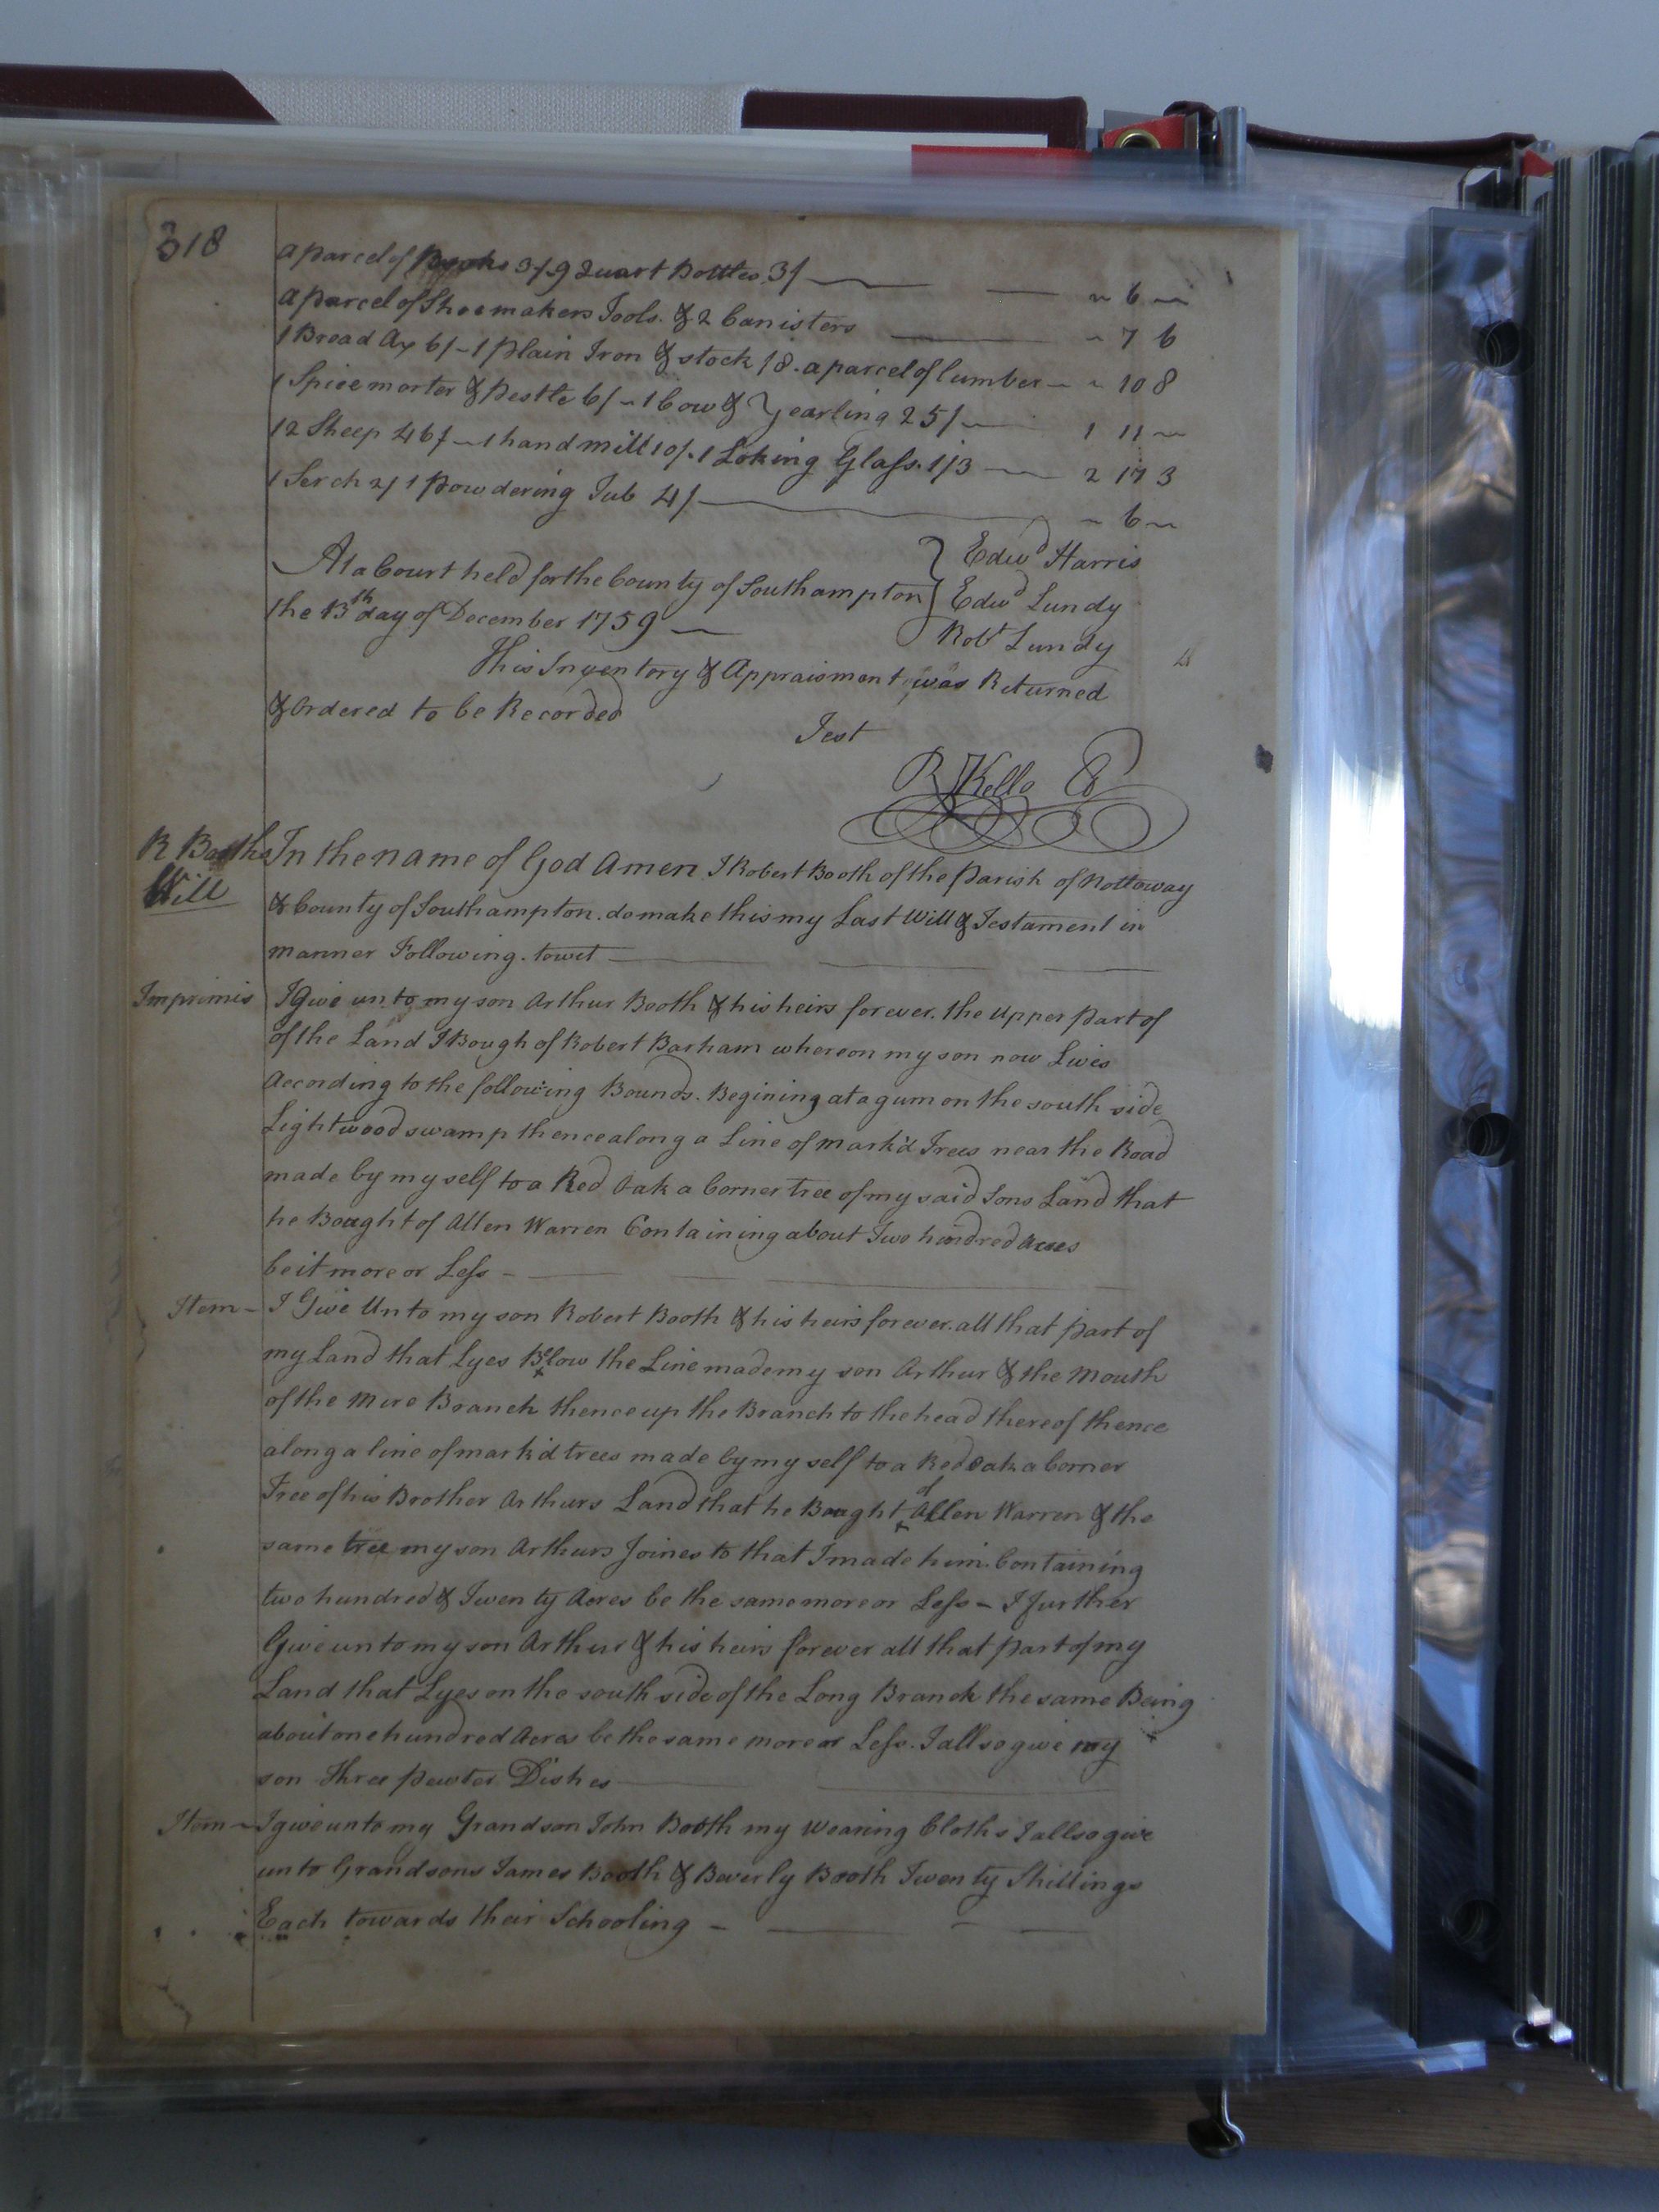 318
a parcel of Books 3/ 9 Quart Bottles 3/ — — ~ 6 ~
a Parcel of Shoemakers Tools. & 2 Canisters — ~ 7 6
1 Broad Ax 6/ – 1 plain Iron & stock 18. a parcel of lumber – ~ 10 8
1 Spice morter & Pestle 6/ – 1 Cow & Yearling 25/ — 1 11 ~
12 Sheep 46/ – 1 hand mill 10/. 1 Loking Glass. 1/3 — 2 17 3
1 Serch 2/ 1 Powdering Tub 4/ — ~ 6 ~
At a Court held for the County of Southampton } Edwd Harris
the 13th day of December 1759 — Edwd Lundy
Robt Lundy
This Inventory & Appraisment was Returned
& Ordered to be Recorded
Test
R Kello
R Booths
Will
In the name of God Amen I Robert Booth of the Parish of Nottoway
& County of Southampton. do make this my Last Will & Testament in
manner Following. towit —
Imprimis I Give unto my son Arthur Booth & his heirs forever. the upper part of
of the Land I Bough of Robert Barham whereon my son now Lives
According to the following Bounds. Begining at a gum on the south side
Lightwood swamp thence along a Line of mark'd Trees near the Road
made by my self to a Red Oak a Corner tree of my said Sons Land that
he Bought of Allen Warren Containing about Two hundred Acres
be it more or Less – —
Item – I Give Unto my son Robert Booth & his heirs forever. all that part of
my Land that Lyes Below the Line made my son Arthur & the Mouth
of the Mire Branch thence up the Branch to the head thereof thence
along a line of mark'd trees made by my self to a Red oak a Corner
Tree of his Brother Arthurs Land that he Bought of Allen Warren & the
same tree my son Arthurs Joines to that I made him. Containing
two hundred & Twenty Acres be the same more or Less – I further
Give unto my son Arthur & his heirs forever all that part of my
Land that Lyes on the south side of the Long Branch the same Being
about one hundred Acres be the same more or Less. I allso give my
son Three pewter Dishes —
Item – I give unto my Grandson John Booth my Wearing Cloths I allso give
unto Grandsons James Booth & Beverly Booth Twenty Shillings
Each towards their Schooling – —